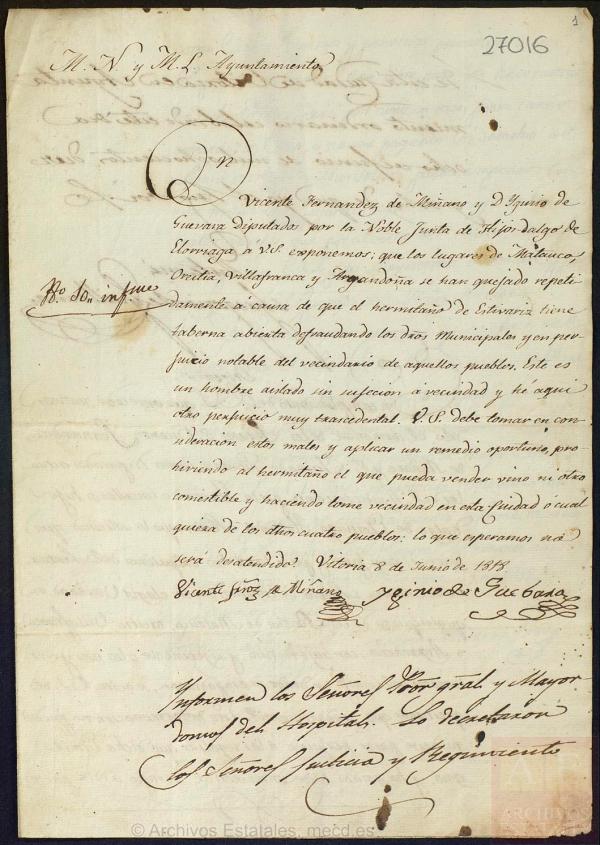 1
27016
M. N. y M. L. Ayuntamiento
Dn
Vicente Fernandez de Miñano y D. Yginio de
Guevara Diputados por la Noble Junta de Hijosdalgo de
Elorriaga á V.S. exponemos; que los lugares de Matauco,
Oreitia, Villafranca y Argandoña se han quejado repeti-
damente á causa de que el hermitaño de Estivariz tiene
taberna abierta defraudando los dros Municipales y en per-
juicio notable del vecindario de aquellos pueblos. Este es
un hombre aislado sin sujecion á vecindad y he aqui
otro perjuicio muy trascedental. V.S. debe tomar en con-
sideracion estos males y aplicar un remedio oportuno, pro-
hiviendo al hermitaño el que pueda vender vino ni otro
comestible y haciendo tome vecindad en esta Ciudad ó cual
quiera de los dhos cuatro pueblos: lo que esperamos no
será desatendido. Vitoria 8 de Junio de 1818
Vicente frnz de Miñano
yginio de Guebara
Informen los Señores Pror gral y Mayor
domos del Hospital. Lo decretaron
los Señores Justicia y Regimiento
ARCHIVOS
© Archivos Estatales, mecd.es